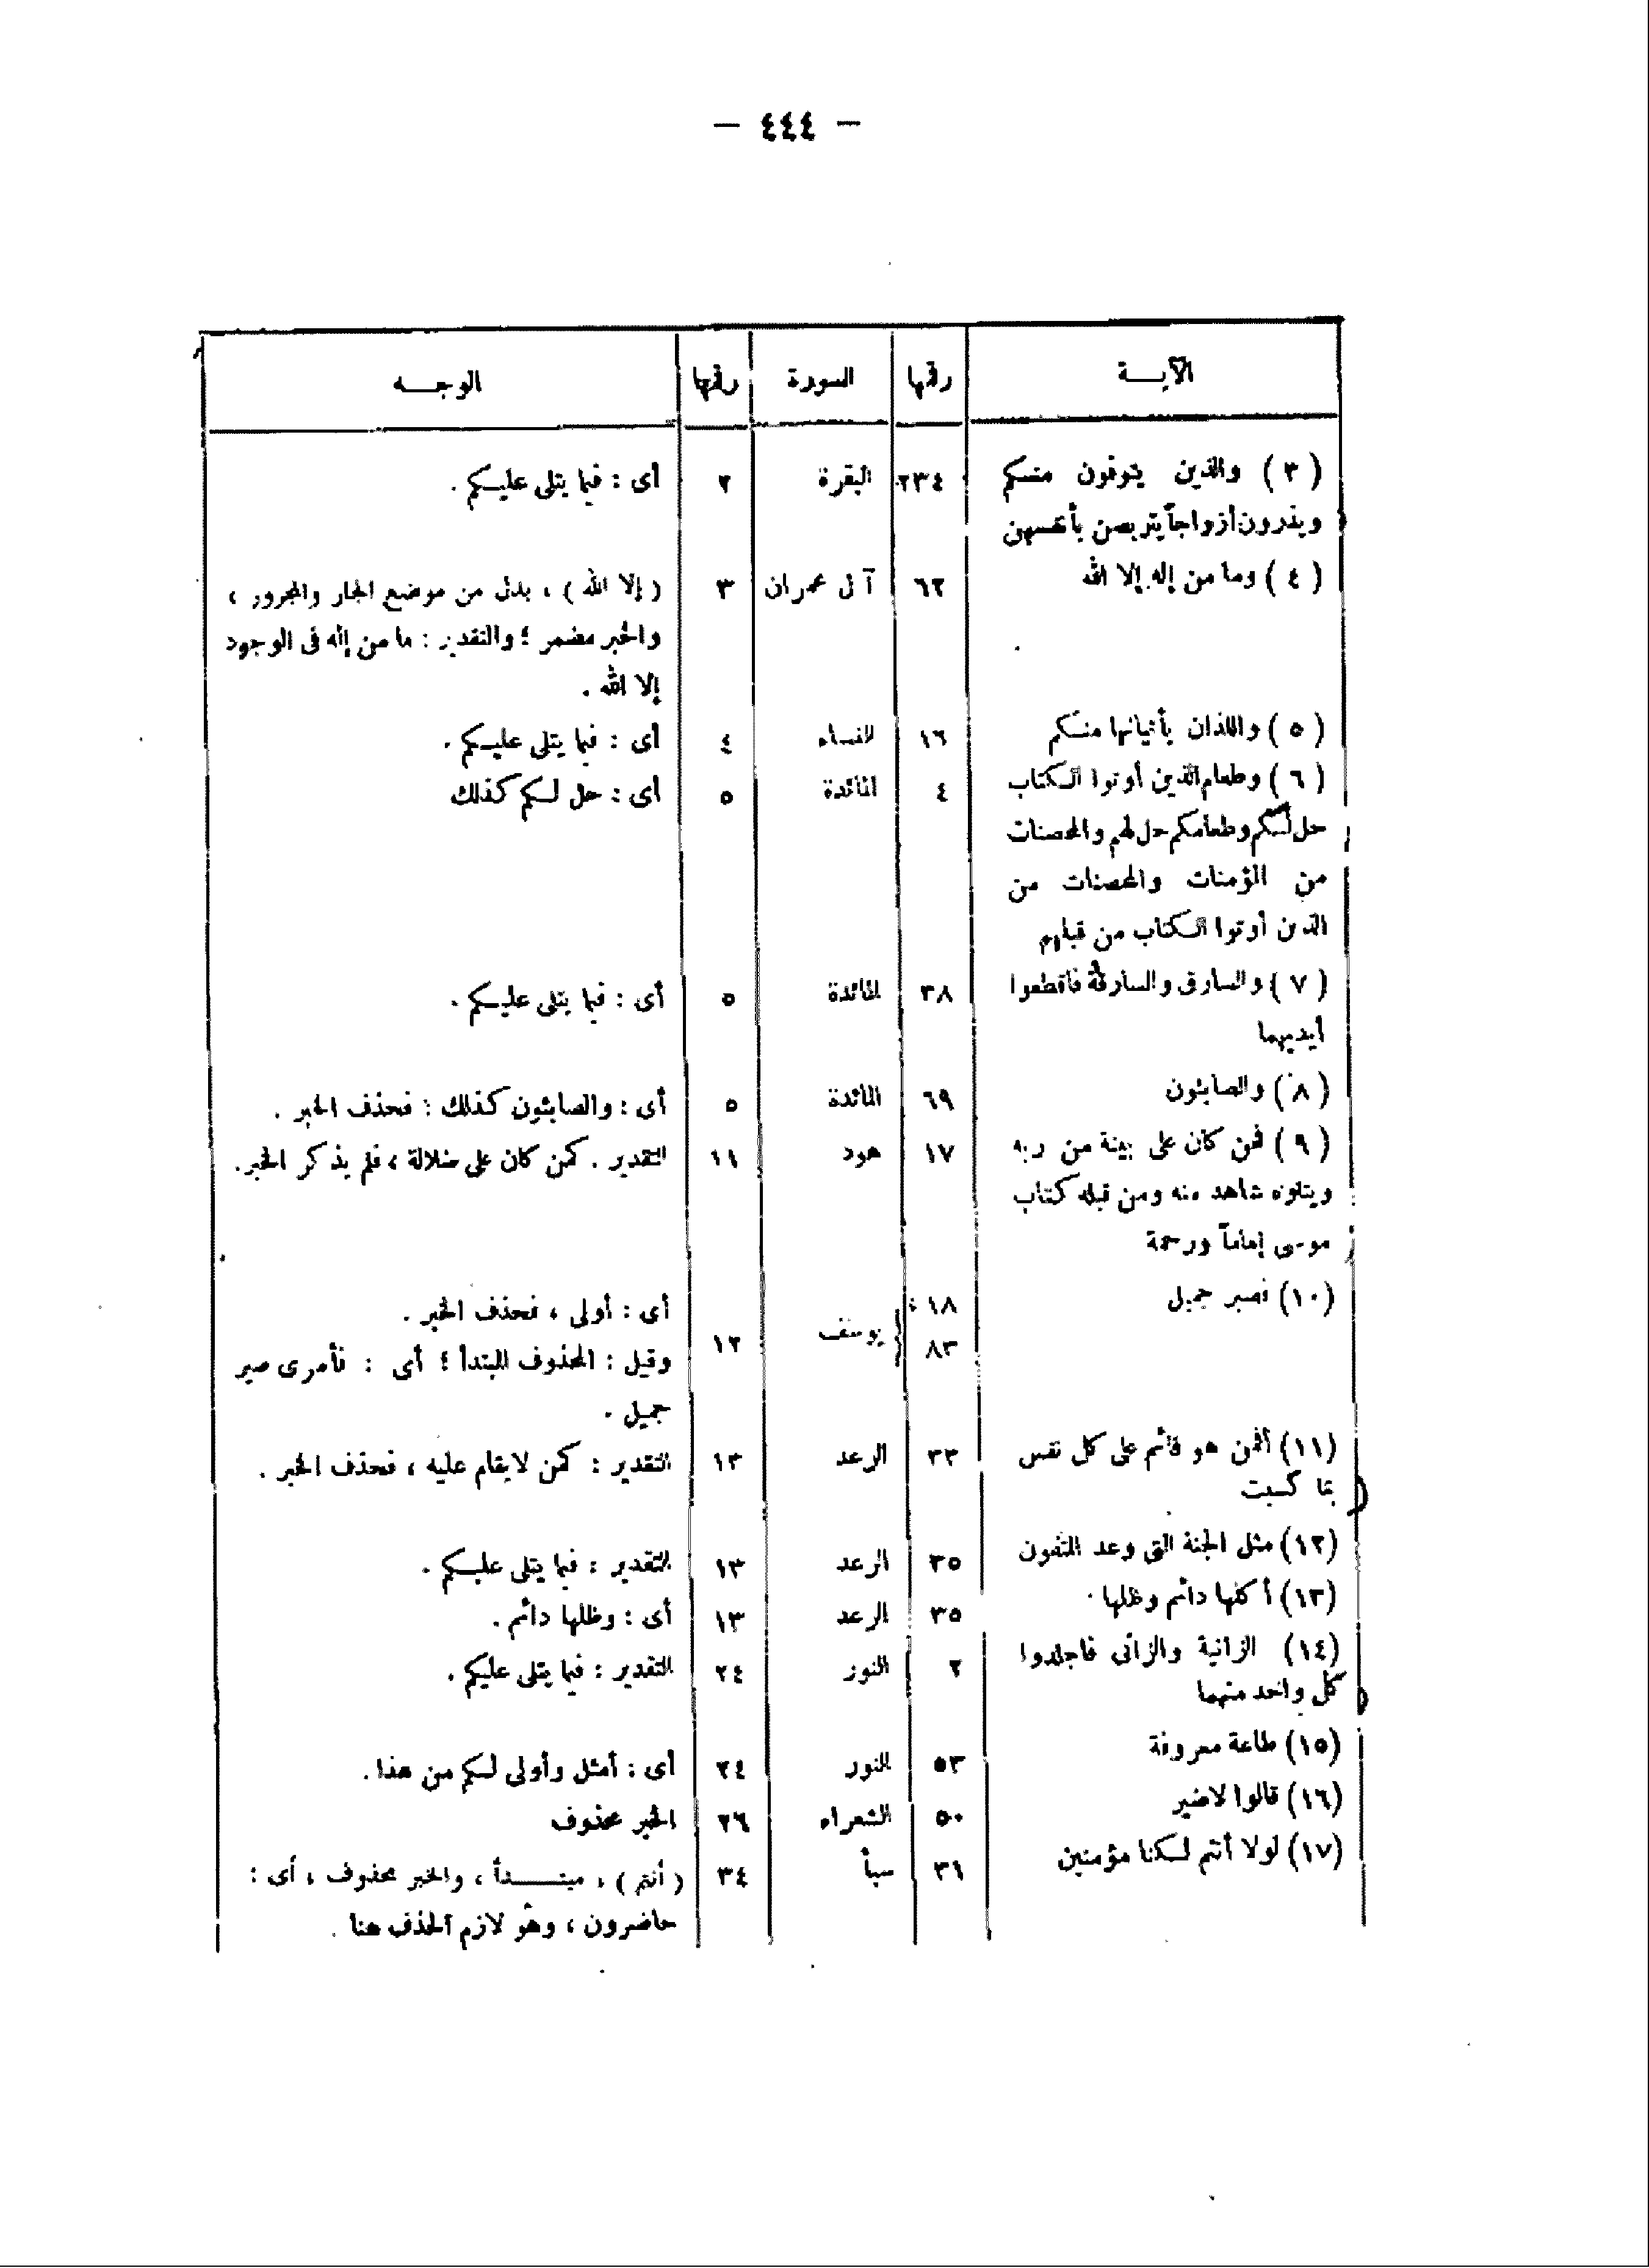 — ٤٤٤ —
الآيــة رقمها السورة رقمها الوجــه
( ٣ ) والذين يتوفون منكم ٢٣٤ البقرة ٢ أى : فيما يتلى عليكم .
ويذرون أزواجاً يتربصن بأنفسهن
( ٤ ) وما من إله إلا الله ٦٢ آل عمران ٣ ( إلا الله ) ، بدل من موضع الجار والمجرور ،
والخبر مضمر ؛ والتقدير : ما من إله فى الوجود
إلا الله .
( ٥ ) واللذان يأتيانها منكم ١٦ النساء ٤ أى : فيما يتلى عليكم .
( ٦ ) وطعام الذين أوتوا الكتاب ٤ المائدة ٥ أى : حل لكم كذلك
حل لكم وطعامكم حل لهم والمحصنات
من المؤمنات والمحصنات من
الذين أوتوا الكتاب من قبلهم
( ٧ ) والسارق والسارقة فاقطعوا ٣٨ المائدة ٥ أى : فيما يتلى عليكم .
أيديهما
( ٨ ) والصابئون ٦٩ المائدة ٥ أى : والصابئون كذلك : فحذف الخبر .
( ٩ ) فمن كان على بينة من ربه ١٧ هود ١١ التقدير . كمن كان على ضلالة ، فلم يذكر الخبر.
ويتلوه شاهد منه ومن قبله كتاب
موسى إماماً ورحمة
(١٠) فصبر جميل ١٨ ، يوسف ١٢ أى : أولى ، فحذف الخبر .
٨٣ وقيل : المحذوف المبتدأ ؛ أى : فأمرى صبر
جميل .
(١١) أفمن هو قائم على كل نفس ٣٣ الرعد ١٣ التقدير : كمن لا يقام عليه ، فحذف الخبر .
بما كسبت
(١٢) مثل الجنة التى وعد المتقون ٣٥ الرعد ١٣ التقدير : فيما يتلى عليكم .
(١٣) أكلها دائم وظلها . ٣٥ الرعد ١٣ أى : وظلها دائم .
(١٤) الزانية والزانى فاجلدوا ٢ النور ٢٤ التقدير : فيما يتلى عليكم .
كل واحد منهما
(١٥) طاعة معروفة ٥٣ النور ٢٤ أى : أمثل وأولى لكم من هذا .
(١٦) قالوا لا ضير ٥٠ الشعراء ٢٦ الخبر محذوف
(١٧) لولا أنتم لكنا مؤمنين ٣١ سبأ ٣٤ ( أنتم ) ، مبتــدأ ، والخبر محذوف ، أى :
حاضرون ، وهو لازم الحذف هنا .